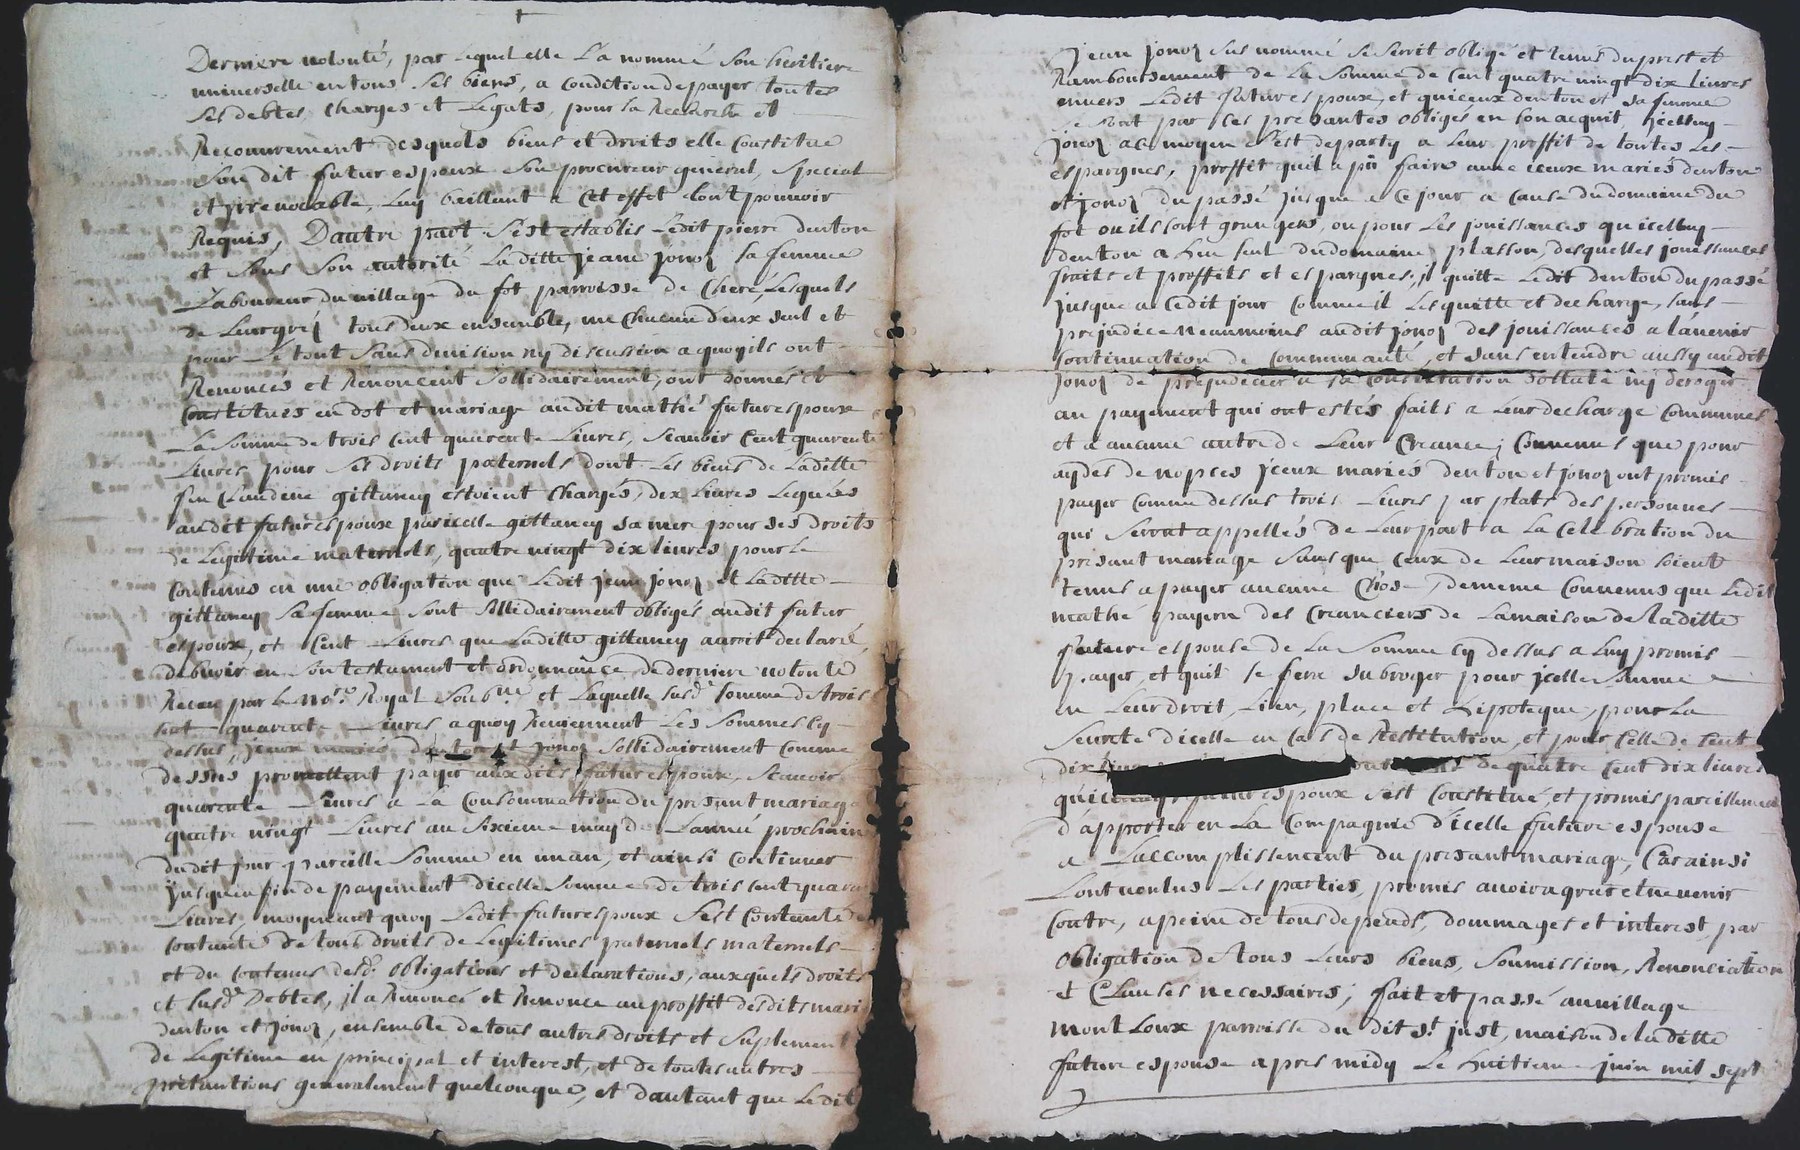 Derniere volonté, par lequel elle l'a nommé son heritiere
universelle en tous ses biens, a condition de payer toutes
ses debtes, charges et legats, pour la Recherche et
Recouvrement desquels biens et droits elle constitue
son dit futur espoux son procureur general, special
et irrevocable, luy baillant a cet effet tout pouvoir
Requis, Dautre part s'est establis ledit pierre denton
et sous son autorité laditte jeane jonoz sa femme
Laboureur du village du fot parroisse de Cheré, lesquels
de leur gréz tous deux ensemble, un chacun d'eux seul et
pour le tout sans division ny discussion a quoy ils ont
Renoncés et Renoncent sollidairement, ont donnés et
Constitués en dot et mariage audit mathé futur espoux
La somme de trois cent quarente Livres, scavoir Cent quarente
Livres pour ses droits paternels dont les biens de laditte
feu Claudine gittaney estoient chargés, dix Livres legués
audit futur espoux par icelle gittaney sa mere pour ses droits
de legitime maternels, quatre vingt dix livres pour le
Contenus en une obligation que ledit jean jonoz et laditte
gittaney sa femme sont sollidairement obligés audit futur
espoux, et Cent Livres que laditte gittaney auroit declaré
debvoir en son testament et ordonnance de derniere volonté
Receu par le no.re Royal soub.né et laquelle susd. somme de trois
cent quarente Livres a quoy Reviennent les sommes cy
dessus, jceux mariés denton et jonoz sollidairement comme
dessus promettent payer audit futur espoux, scavoir
quarente Livres a la Consommation du present mariage
quatre vingt Livres au sixieme may de l'année prochain
dudit jour pareille somme en un an, et ainsi continuer
jusqu'en fin de payement d'icelle somme de trois cent quaren
Livres, moyenant quoy ledit futur espoux s'est contenté
contente de tous droits de legitimes paternels, maternels
et du contenus desd. obligations et declarations, auxquels droits
et susd. Debtes, il a Renoncé et Renonce au proffit desdits mariés
denton et jonoz, ensemble de tous autres droits et suplement
de legitime en principal et interest, et de toutes autres
pretantions generalement quelconque, et d'autant que ledit
jean jonoz sus nommé se seroit obligé et tenus du prest et
Ramboursement de la somme de Cent quatre vingt dix Livres
envers ledit futur espoux, et qu'iceux denton et sa femme
se sont par ces presantes obligés en son acquit, jcelluy
jonoz a ce moyen s'est departy a leur proffit de toutes les
espargnes, proffit qu'il a pû faire avec iceux mariés denton
et jonoz du passé jusque a ce jour a cause du domaine du
fot ou ils sont grangers, ou pour les jouissances qu'icelluy
denton a Luy seul du domaine plasson, desquelles jouissances
fruits et proffits et espargnes, il quitte ledit denton du passé
jusque a cedit jour comme il les quitte et decharge, sans
prejudice neanmoins audit jonoz des jouissances a l'avenir
continuation de communauté, et sans entendre aussy audit
jonoz de prejudicier a sa constitution dottale ny deroger
au payement qui ont estés faits a leur decharge communes
et a aucune autre de leur Creance; Convenus que pour
aydes de nopces jceux mariés denton et jonoz ont promis
payer comme dessus trois Livres par plats des personnes
qui seront appellés de leur part a la Cellebration du
present mariage sans que ceux de leur maison soient
tenus a payer aucune chose, demême convenus que ledit
mathé payera des Creanciers de la maison de laditte
future espouse de la somme cy dessus a luy promis
payer, et qu'il se fera subroger pour jcelle somme
en leur droit, lieu, place et hipoteque, pour la
seureté d'icelle en cas de Restitution, et pour celle de cent
dix de quatre cent dix livres
espoux s'est Constitué, et promis pareillement
d'apporter en la compagnie d'icelle future espouse
a l'accomplissement du present mariage, Car ainsi
l'ont voulus les parties, promis avoir agreé et ne venir
contre, a peine de tous depends, dommages et interest, par
obligation de tous leurs biens, soumission, Renonciation
et clauses necessaires; fait et passé au village
mont loux parroisse du dit st just, maison de laditte
future espouse apres midy le huitieme juin mil sept